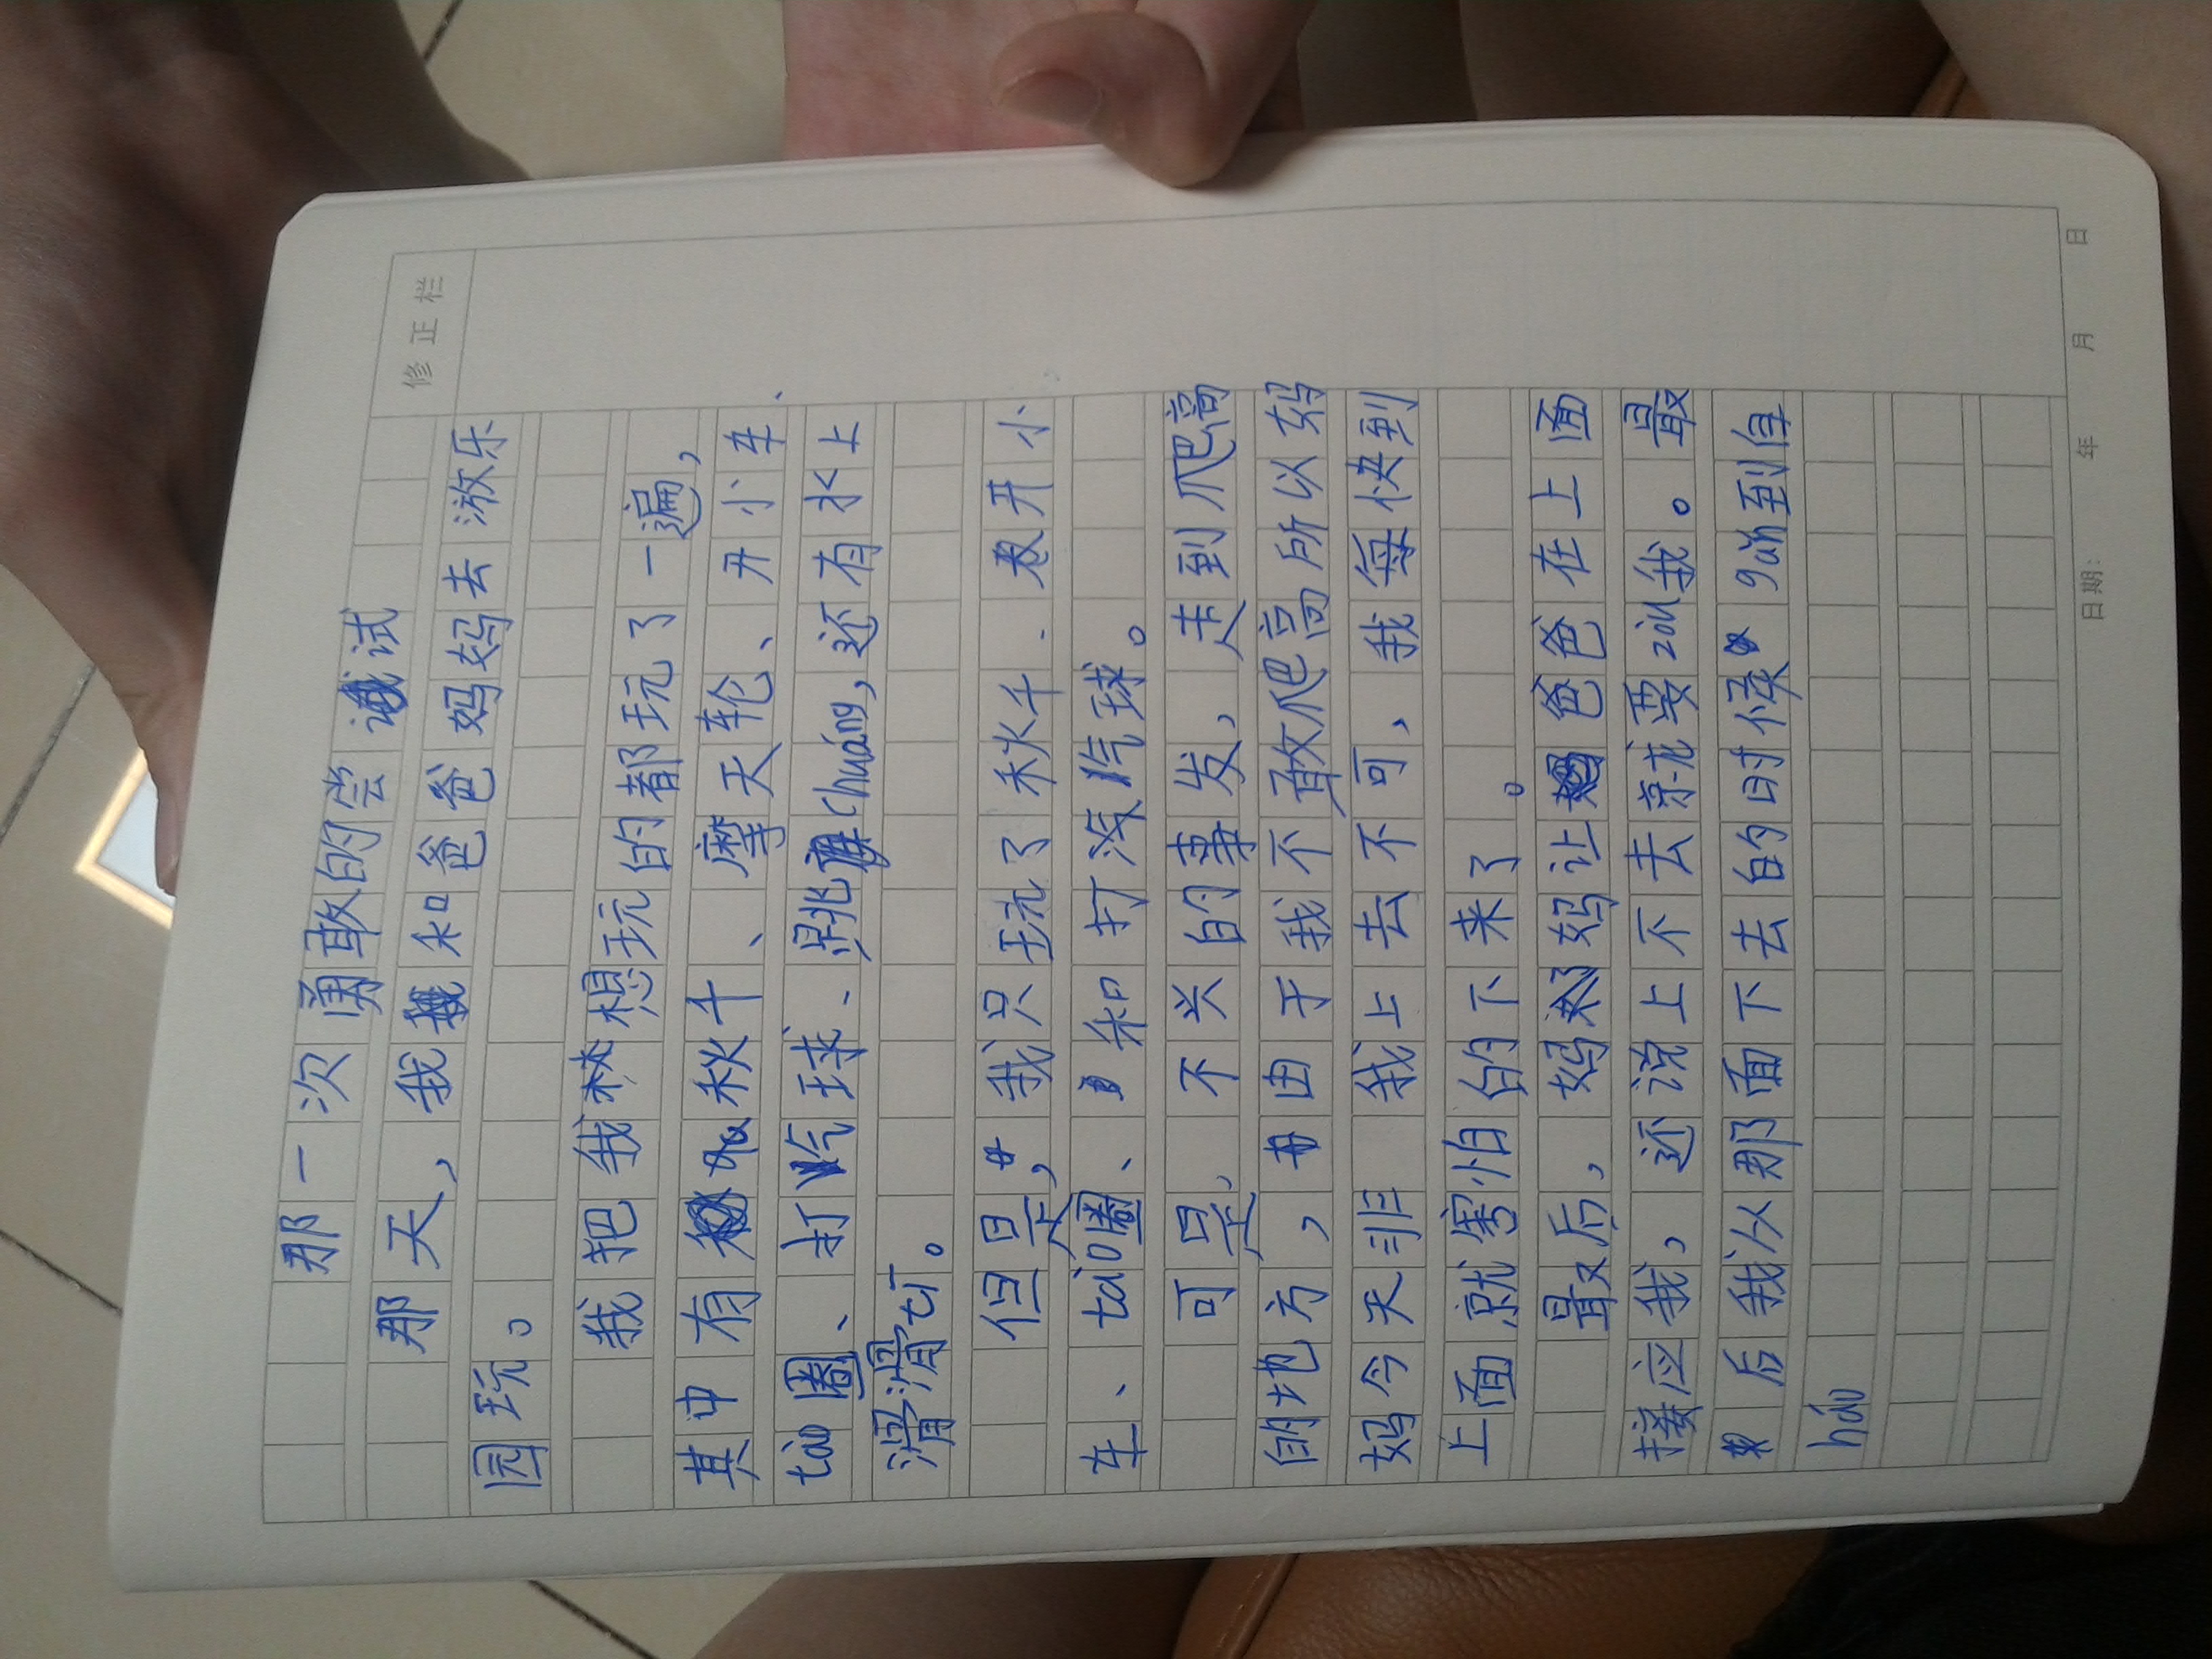 修正栏
那一次勇敢的尝试
那天，我和爸爸妈妈去游乐
园玩。
我把我想玩的都玩了一遍，
其中有秋千、、摩天轮、开小车、
tào圈、打气球、跳chuáng，还有水上
滑滑tī。
但是，我只玩了秋千、开小
车、tào圈、和打气球。
可是，不兴的事发，走到爬高
的地方，由于我不敢爬高所以妈
妈今天非我上去不可，我每快到
上面就害怕的下来了。
最后，妈妈让爸爸在上面
接应我，还说上不去就要zòu我。最
后我从那面下去的时候gǎn到自
háo
日期: 年 月 日